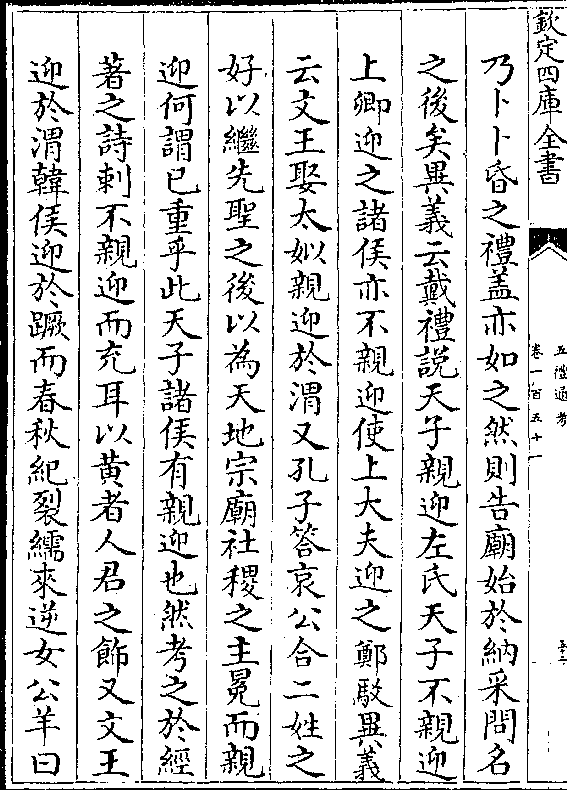 欽定四庫全書
五禮通考
卷一百五十一
乃卜卜昏之禮蓋亦如之然則告廟始於納采問名
之後矣異義云戴禮說天子親迎左氏天子不親迎
上卿迎之諸侯亦不親迎使上大夫迎之鄭駁異義
云文王娶太姒親迎於渭又孔子答哀公合二姓之
好以繼先聖之後以為天地宗廟社稷之主冕而親
迎何謂已重乎此天子諸侯有親迎也然考之於經
著之詩刺不親迎而充耳以黄者人君之飾又文王
迎於渭韓侯迎於蹶而春秋紀裂繻來逆女公羊曰